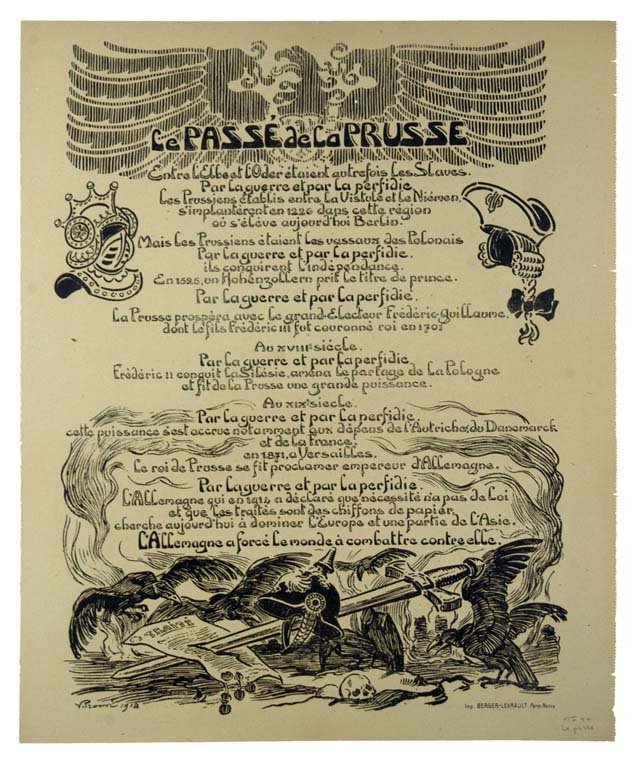 Le PASSÉ de La PRUSSE
Entre L'Elbe et L'Oder étaient autrefois Les Slaves.
Par La guerre et par La perfidie
Les Prussiens établis entre La Vistule et Le Niémen,
s'implantèrent en 1226 dans cette région
où s'élève aujourd'hui Berlin.
Mais Les Prussiens étaient Les vassaux des Polonais
Par La guerre et par La perfidie.
ils conquirent L'indépendance.
En 1525, un Hohenzollern prit Le titre de prince.
Par La guerre et par La perfidie.
La Prusse prospéra avec Le grand-Electeur Frédéric-Guillaume.
dont Le fils Frédéric III fut couronné roi en 1701
Au XVIIIe siècle.
Par La guerre et par La perfidie
Frédéric II conquit La Silésie, amena Le partage de La Pologne
et fit de La Prusse une grande puissance.
Au XIXe siecle.
Par La guerre et par La perfidie,
cette puissance s'est accrue notamment aux dépens de L'Autriche, du Danemarck
et de La France.
en 1871, a Versailles.
Le roi de Prusse se fit proclamer empereur d'Allemagne.
Par La guerre et par La perfidie.
L'Allemagne qui en 1914 a déclaré que nécessité n'a pas de Loi
et que Les traités sont des chiffons de papier,
cherche aujourd'hui à dominer L'Europe et une partie de L'Asie.
L'Allemagne a forcé Le monde à combattre contre elle.
TRAITÉ
V. Prouvé 1918
Imp. BERGER-LEVRAULT, Paris-Nancy